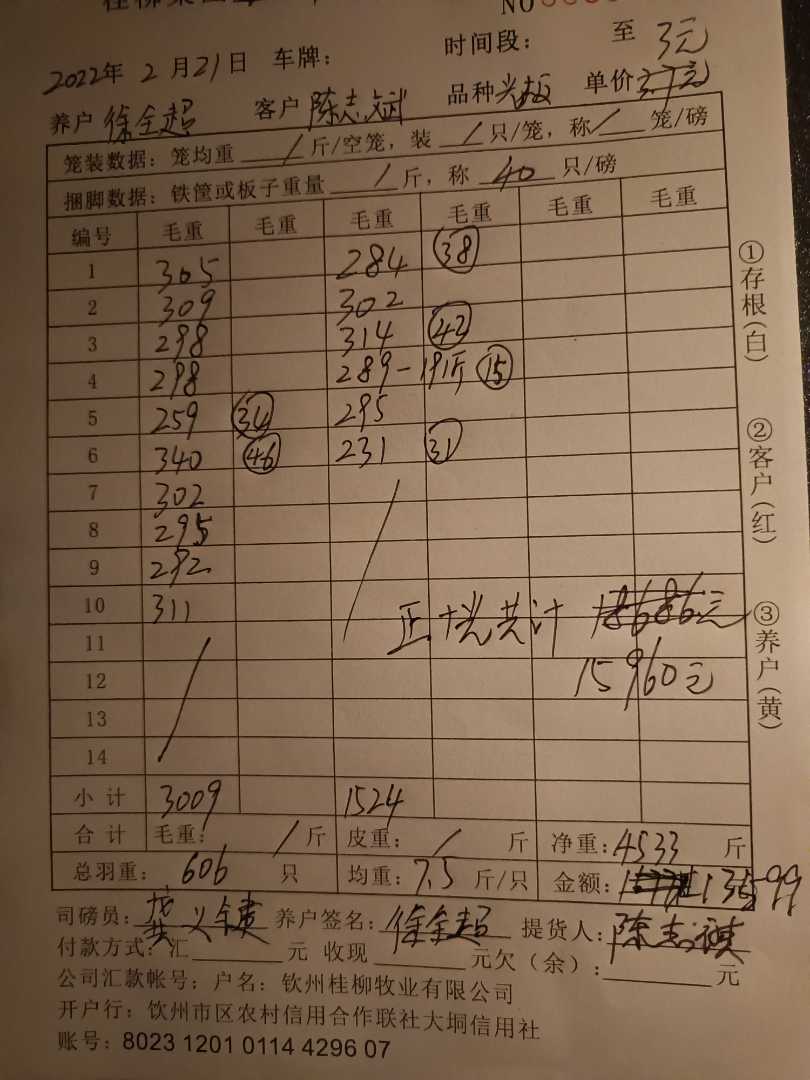 NO
时间段： 至 3元
2022年 2月21日 车牌：
养户 徐全超 客户 陈志斌 品种 光板 单价 3.7元
笼装数据：笼均重 / 斤/空笼，装 / 只/笼，称 / 笼/磅
捆脚数据：铁筐或板子重量 / 斤，称 40 只/磅
编号 毛重 毛重 毛重 毛重 毛重 毛重
1 305 284 38
2 309 302
3 298 314 42
4 298 289-19斤 15
5 259 34 295
6 340 46 231 31
7 302
8 295
9 292
10 311 正 共计 18686元
11
12 15960元
13
14
小计 3009 1524
合计 毛重： / 斤 皮重： / 斤 净重：4533 斤
总羽重： 606 只 均重：7.5 斤/只 金额： 13599
司磅员： 养户签名：徐全超 提货人：陈志祺
付款方式：汇 元 收现 元欠（余）： 元
公司汇款帐号：户名：钦州桂柳牧业有限公司
开户行：钦州市区农村信用合作联社大垌信用社
账号：8023 1201 0114 4296 07
①存根（白）
②客户（红）
③养户（黄）